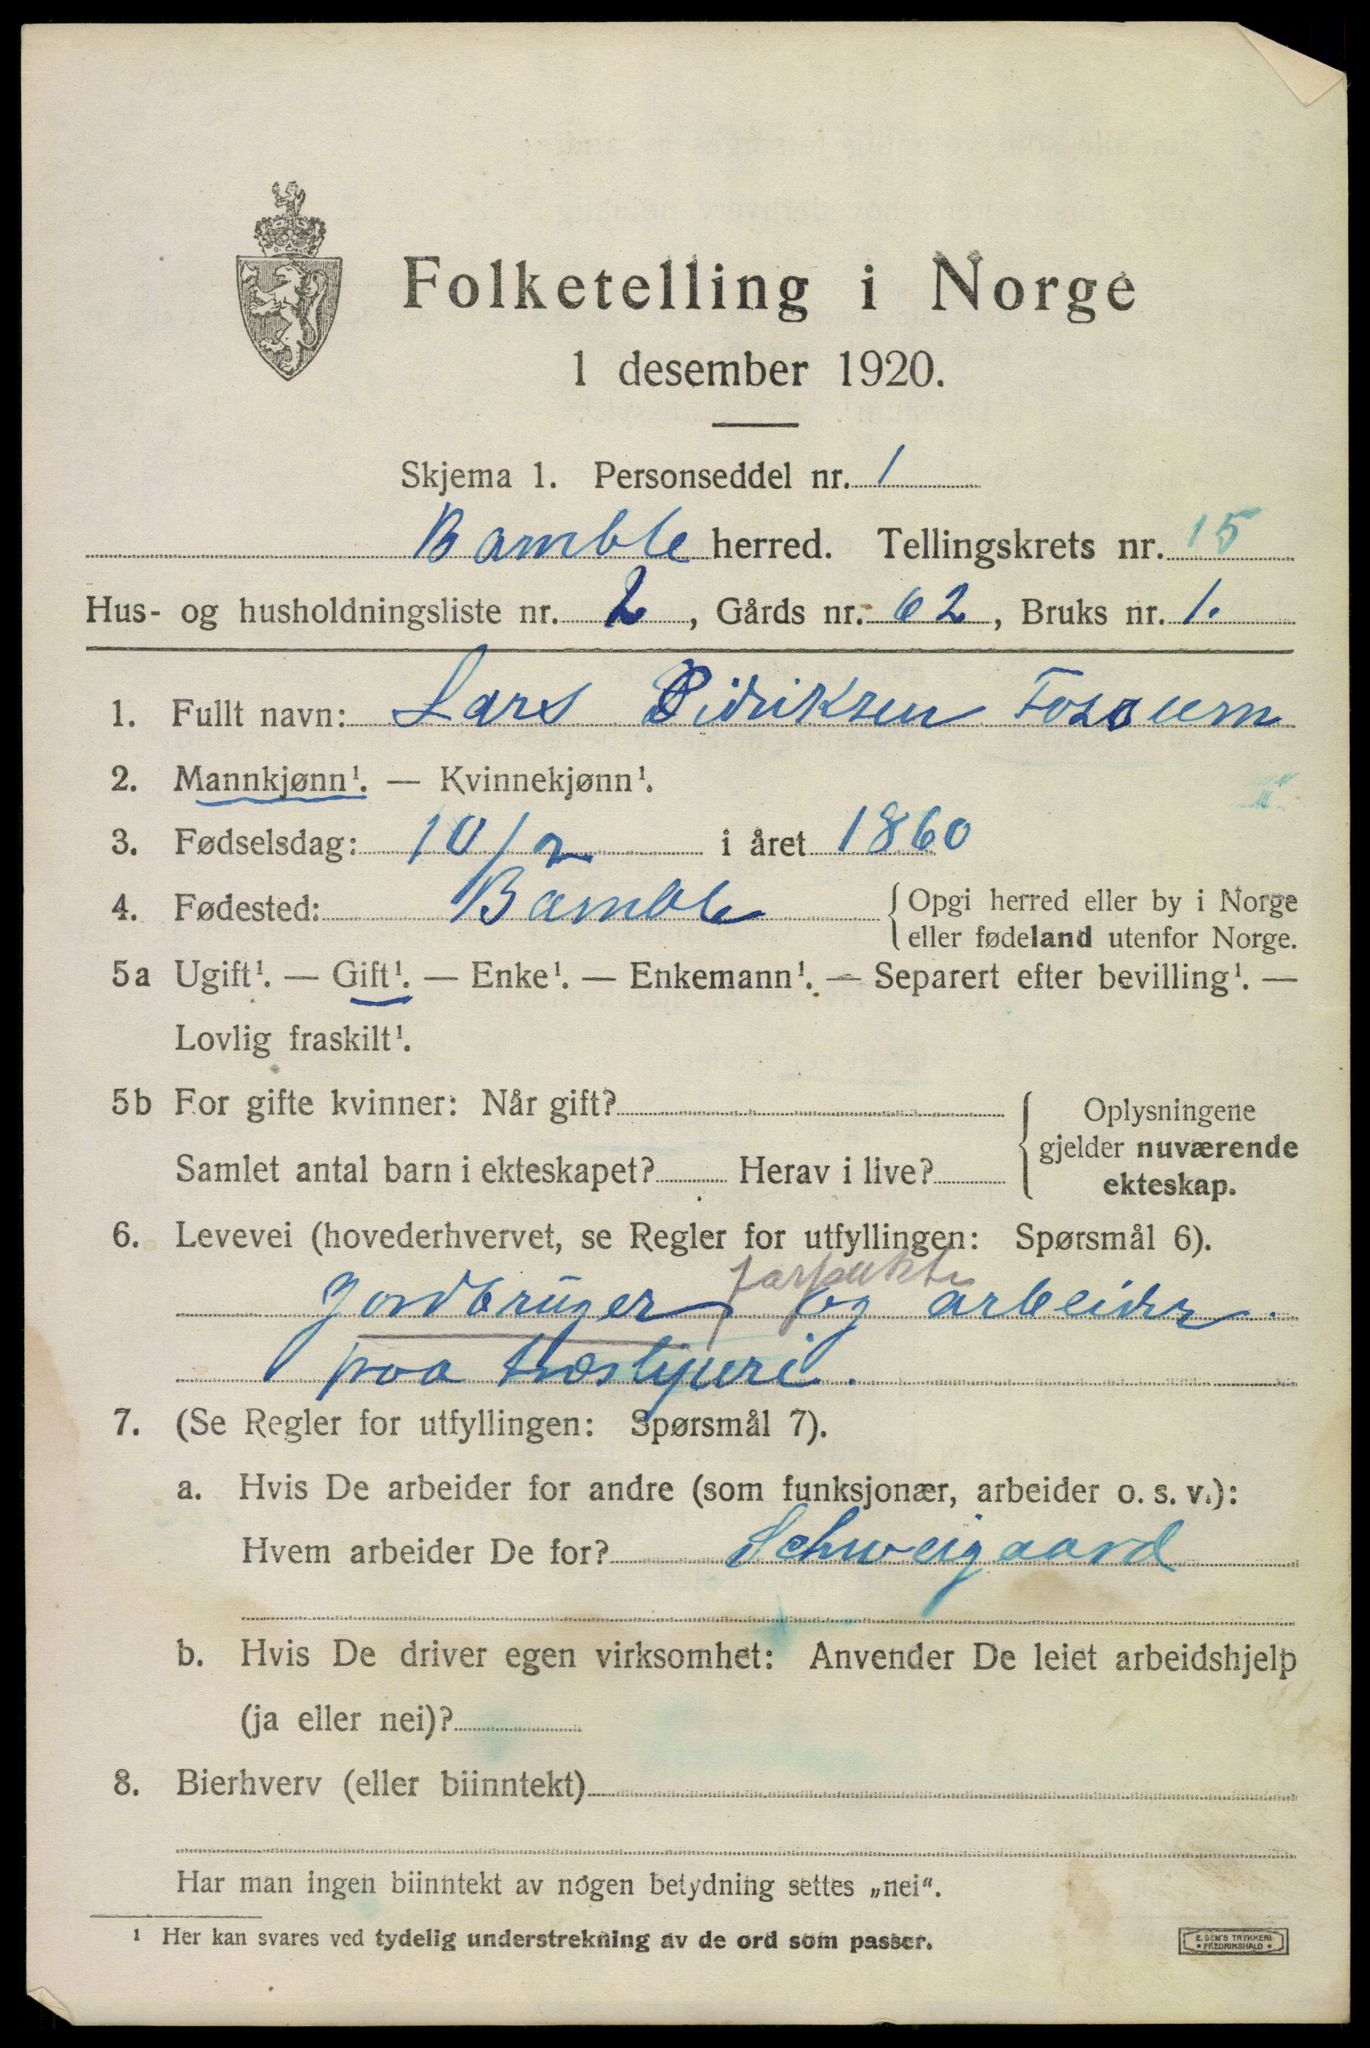 Folketelling i Norge
1 desember 1920.
Skjema 1. Personseddel nr. 1
Bamble herred. Tellingskrets nr. 15
Hus- og husholdningsliste nr. 2, Gårds nr. 62, Bruks nr. 1.
1. Fullt navn: Lars Didriksen Fossum
2. Mannkjønn¹. — Kvinnekjønn¹.
3. Fødselsdag: 10/2 i året 1860
4. Fødested: Bamble {Opgi herred eller by i Norge
eller fødeland utenfor Norge.
5a Ugift¹. — Gift¹. — Enke¹. — Enkemann¹. — Separert efter bevilling¹. —
Lovlig fraskilt¹.
5b For gifte kvinner: Når gift?
Samlet antal barn i ekteskapet? Herav i live?
{Oplysningene
gjelder nuværende
ekteskap.
6. Levevei (hovederhvervet, se Regler for utfyllingen: Spørsmål 6).
forpakter
Jordbruger og arbeider
paa træsliperi.
7. (Se Regler for utfyllingen: Spørsmål 7).
a. Hvis De arbeider for andre (som funksjonær, arbeider o. s. v.):
Hvem arbeider De for? Schweigaard
b. Hvis De driver egen virksomhet: Anvender De leiet arbeidshjelp
(ja eller nei)?
8. Bierhverv (eller biinntekt)
Har man ingen biinntekt av nogen betydning settes „nei“.
¹ Her kan svares ved tydelig understrekning av de ord som passer.
E. SEM'S TRYKKERI
FREDRIKSHALD